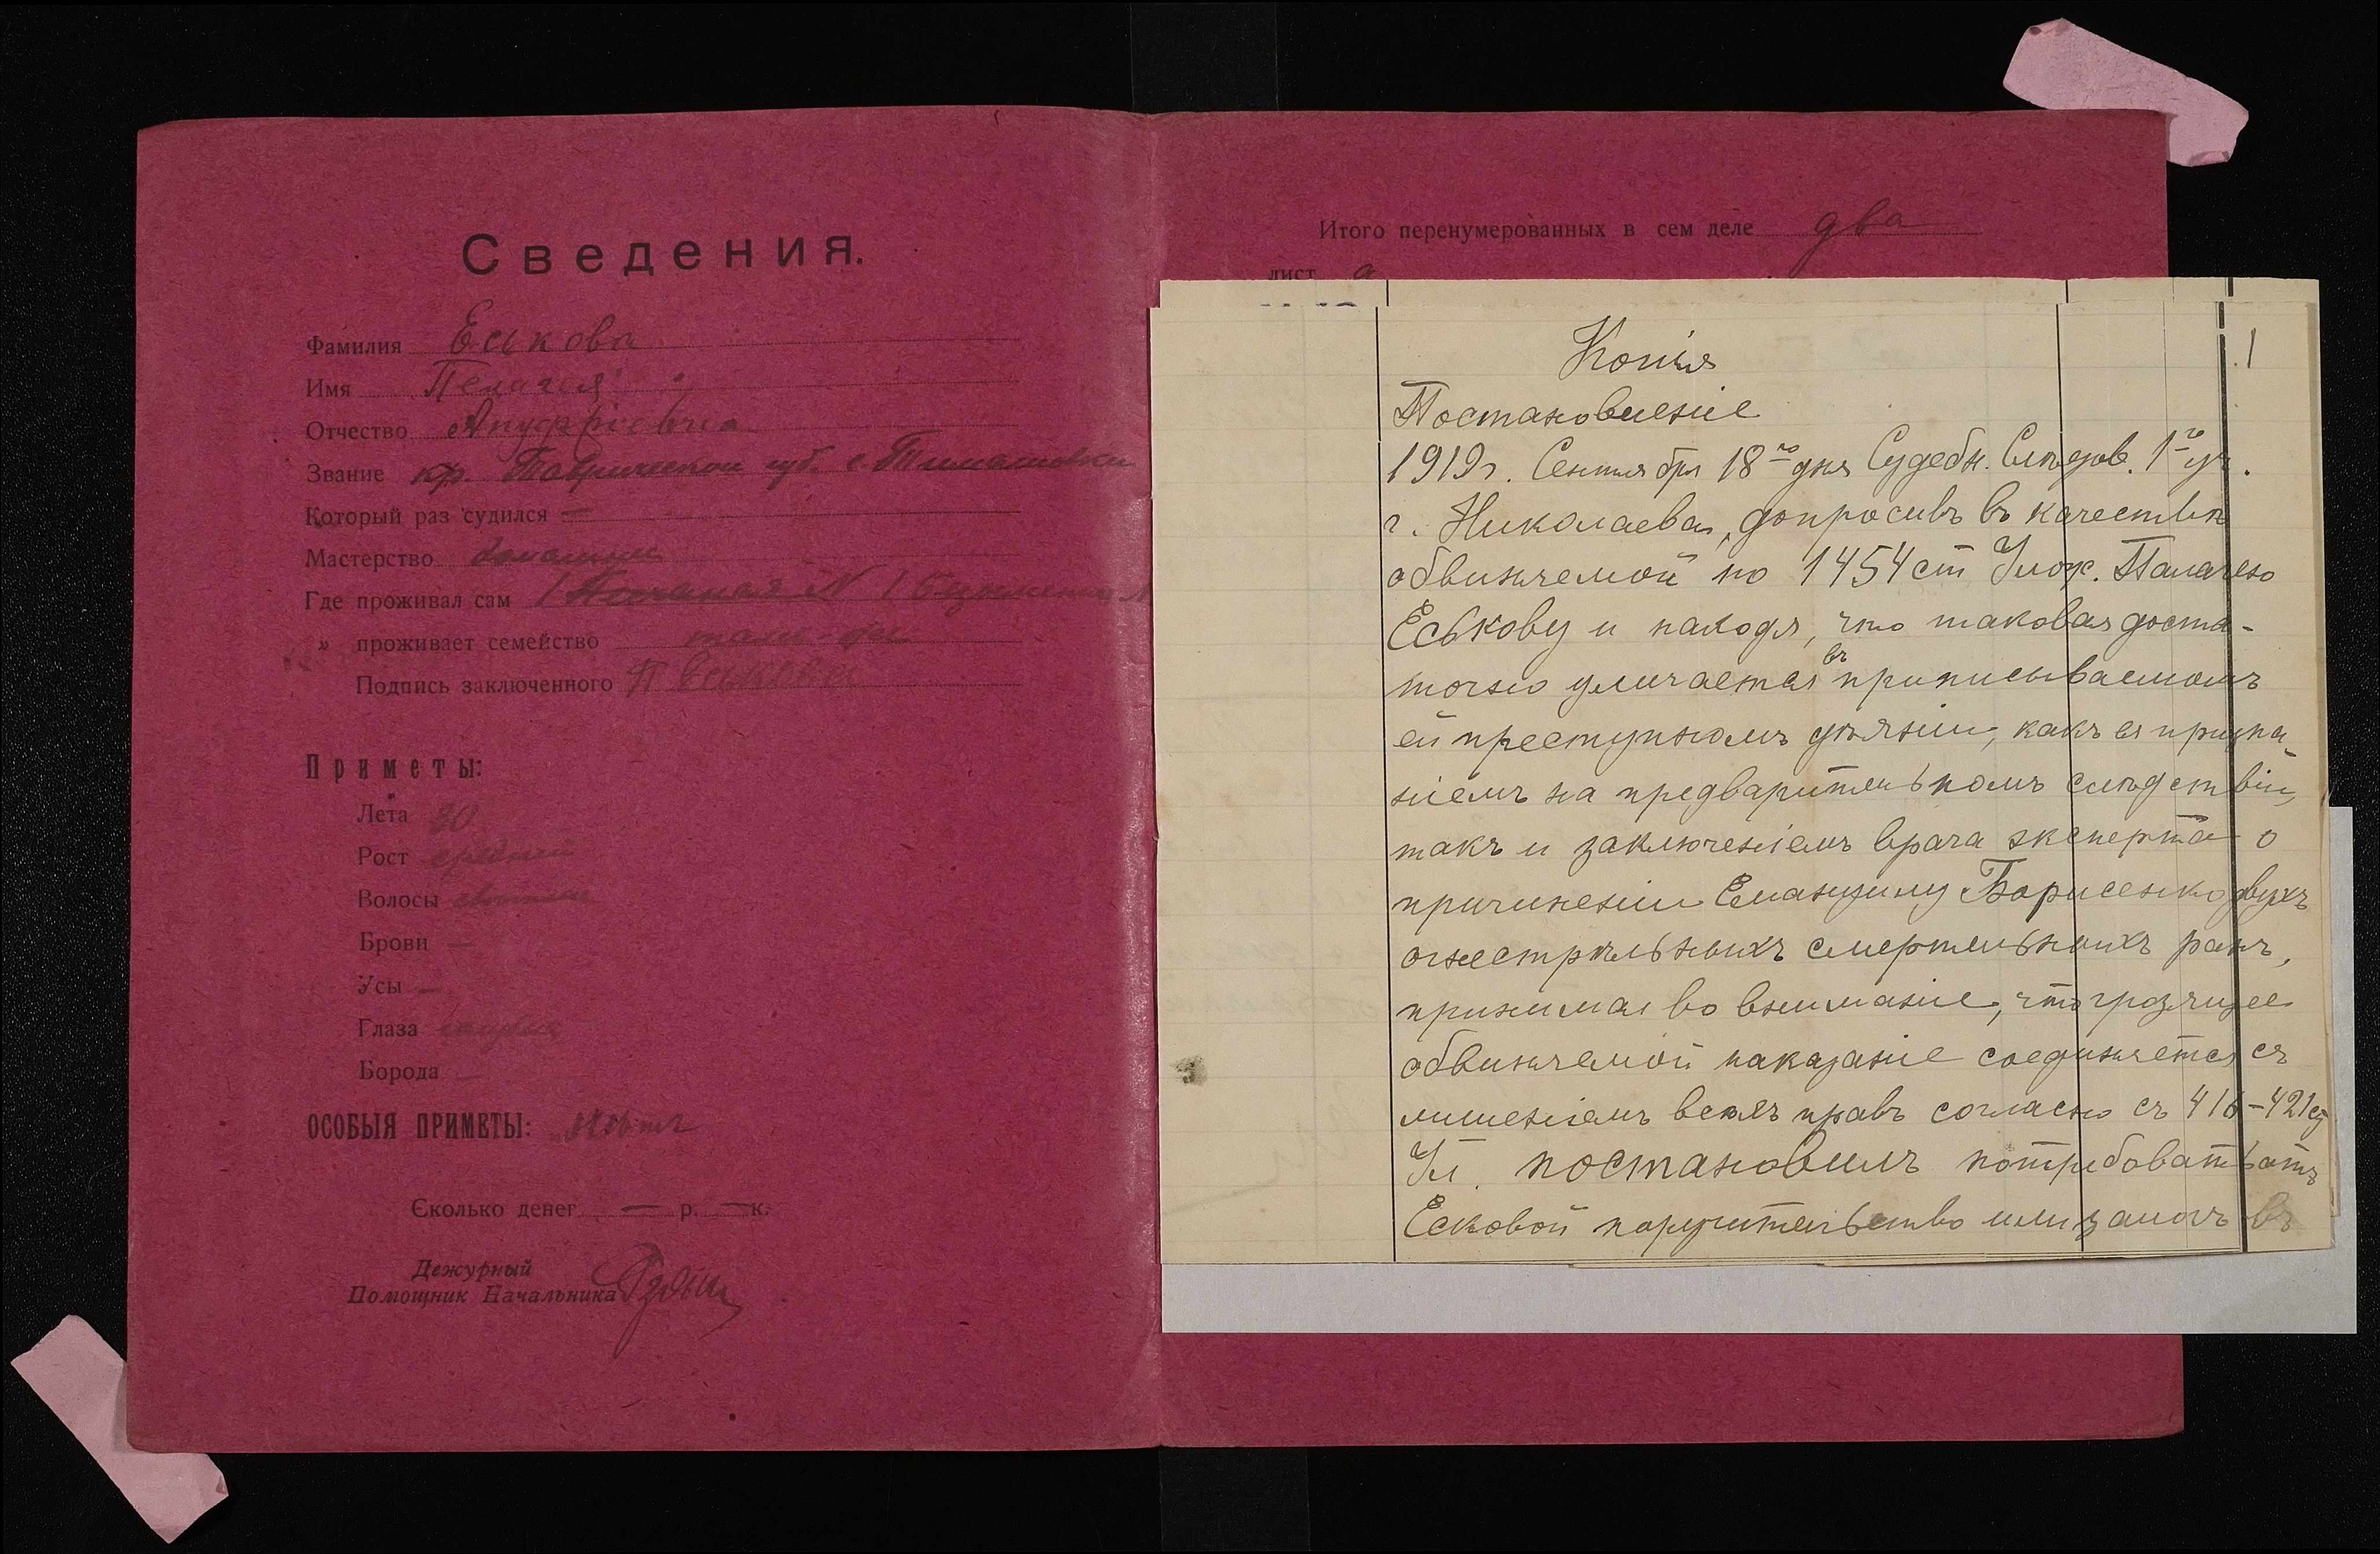 Сведения.
Фамилия Еськова
Имя Пелагея
Отчество Ануфріевна
Звание кр. Таврической губ. с. Тимашовки
Который раз судился —
Мастерство домашнее
Где проживал сам 1 Песчаная N 1
» проживает семейство там-же
Подпись заключенного П Еськова
Приметы:
Лета 20
Рост средній
Волосы светлые
Брови —
Усы —
Глаза
Борода —
ОСОБЫЯ ПРИМЕТЫ: нѣтъ
Сколько денег — р. — к.
Дежурный
Помощник Начальника
Итого перенумерованных в сем деле два
лист а
1
Копія
Постановленіе
1919 г. Сентября 18го дня Судебн. Слѣдов. 1го уч.
г. Николаева, допросивъ въ качествѣ
обвиняемой по 1454 ст Улож. Палагею
Еськову и находя, что таковая доста-
точно уличается въ приписываемомъ
ей преступномъ дѣяніи, какъ ея призна-
ніемъ на предварительномъ слѣдствіи,
такъ и заключеніемъ врача эксперта о
причиненіи Емануилу Борисенко двухъ
огнестрѣльныхъ смертельныхъ ранъ,
принимая во вниманіе, что грозящее
обвиняемой наказаніе соединяется съ
лишеніемъ всѣхъ правъ согласно съ 416-421 ст
Уг. постановилъ потребовать отъ
Есковой поручительство или залогъ въ